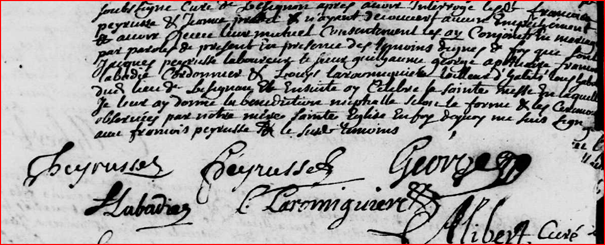 soubsigné Curé de Lesignan après avoir Interrogé les dt francois
peyrusse & Jeanne & n'ayant decouvert aucun Empeschement
& avoir Receu leur mutuel Consentement les ay Conjoint en mariage
par paroles de present in presence des temoins dignes de foy que sont
Jacques peyrusse laboureur & sieur guilhaume george francois
labadie Cordonnier & Louys laromiguiere habits tous
dud. lieu de Lesignan & Ensuite ay Celebré la sainte messe en laquelle
Je leur ay donné la benediction nuptialle selon la forme & les Ceremonies
observées par notre mere Sainte Eglise En foy dequoy me suis signé
avec francois peyrusse & les temoins
Peyrusse Peyrusse George
Labadie L Laromiguiere
Alibert Curé